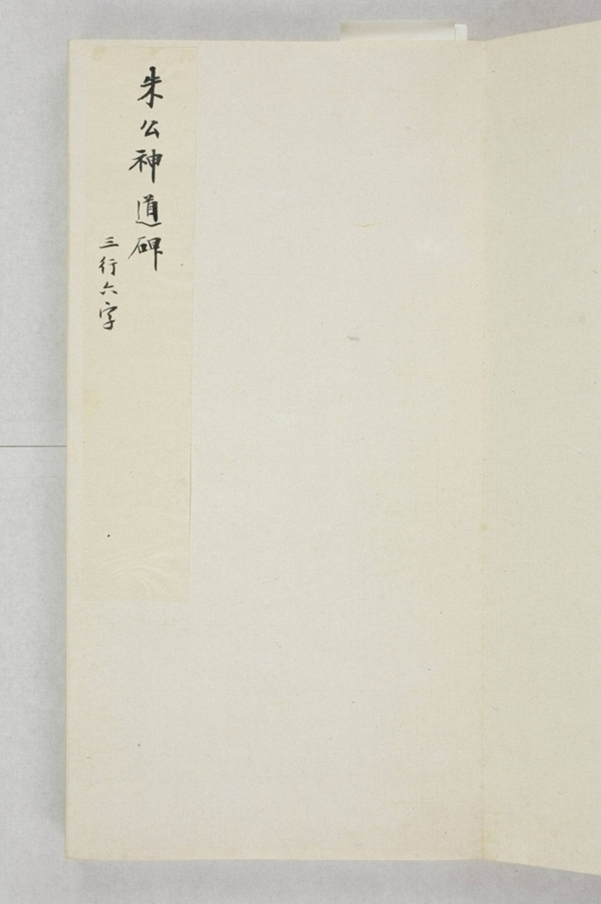 朱公神道碑
三行六字